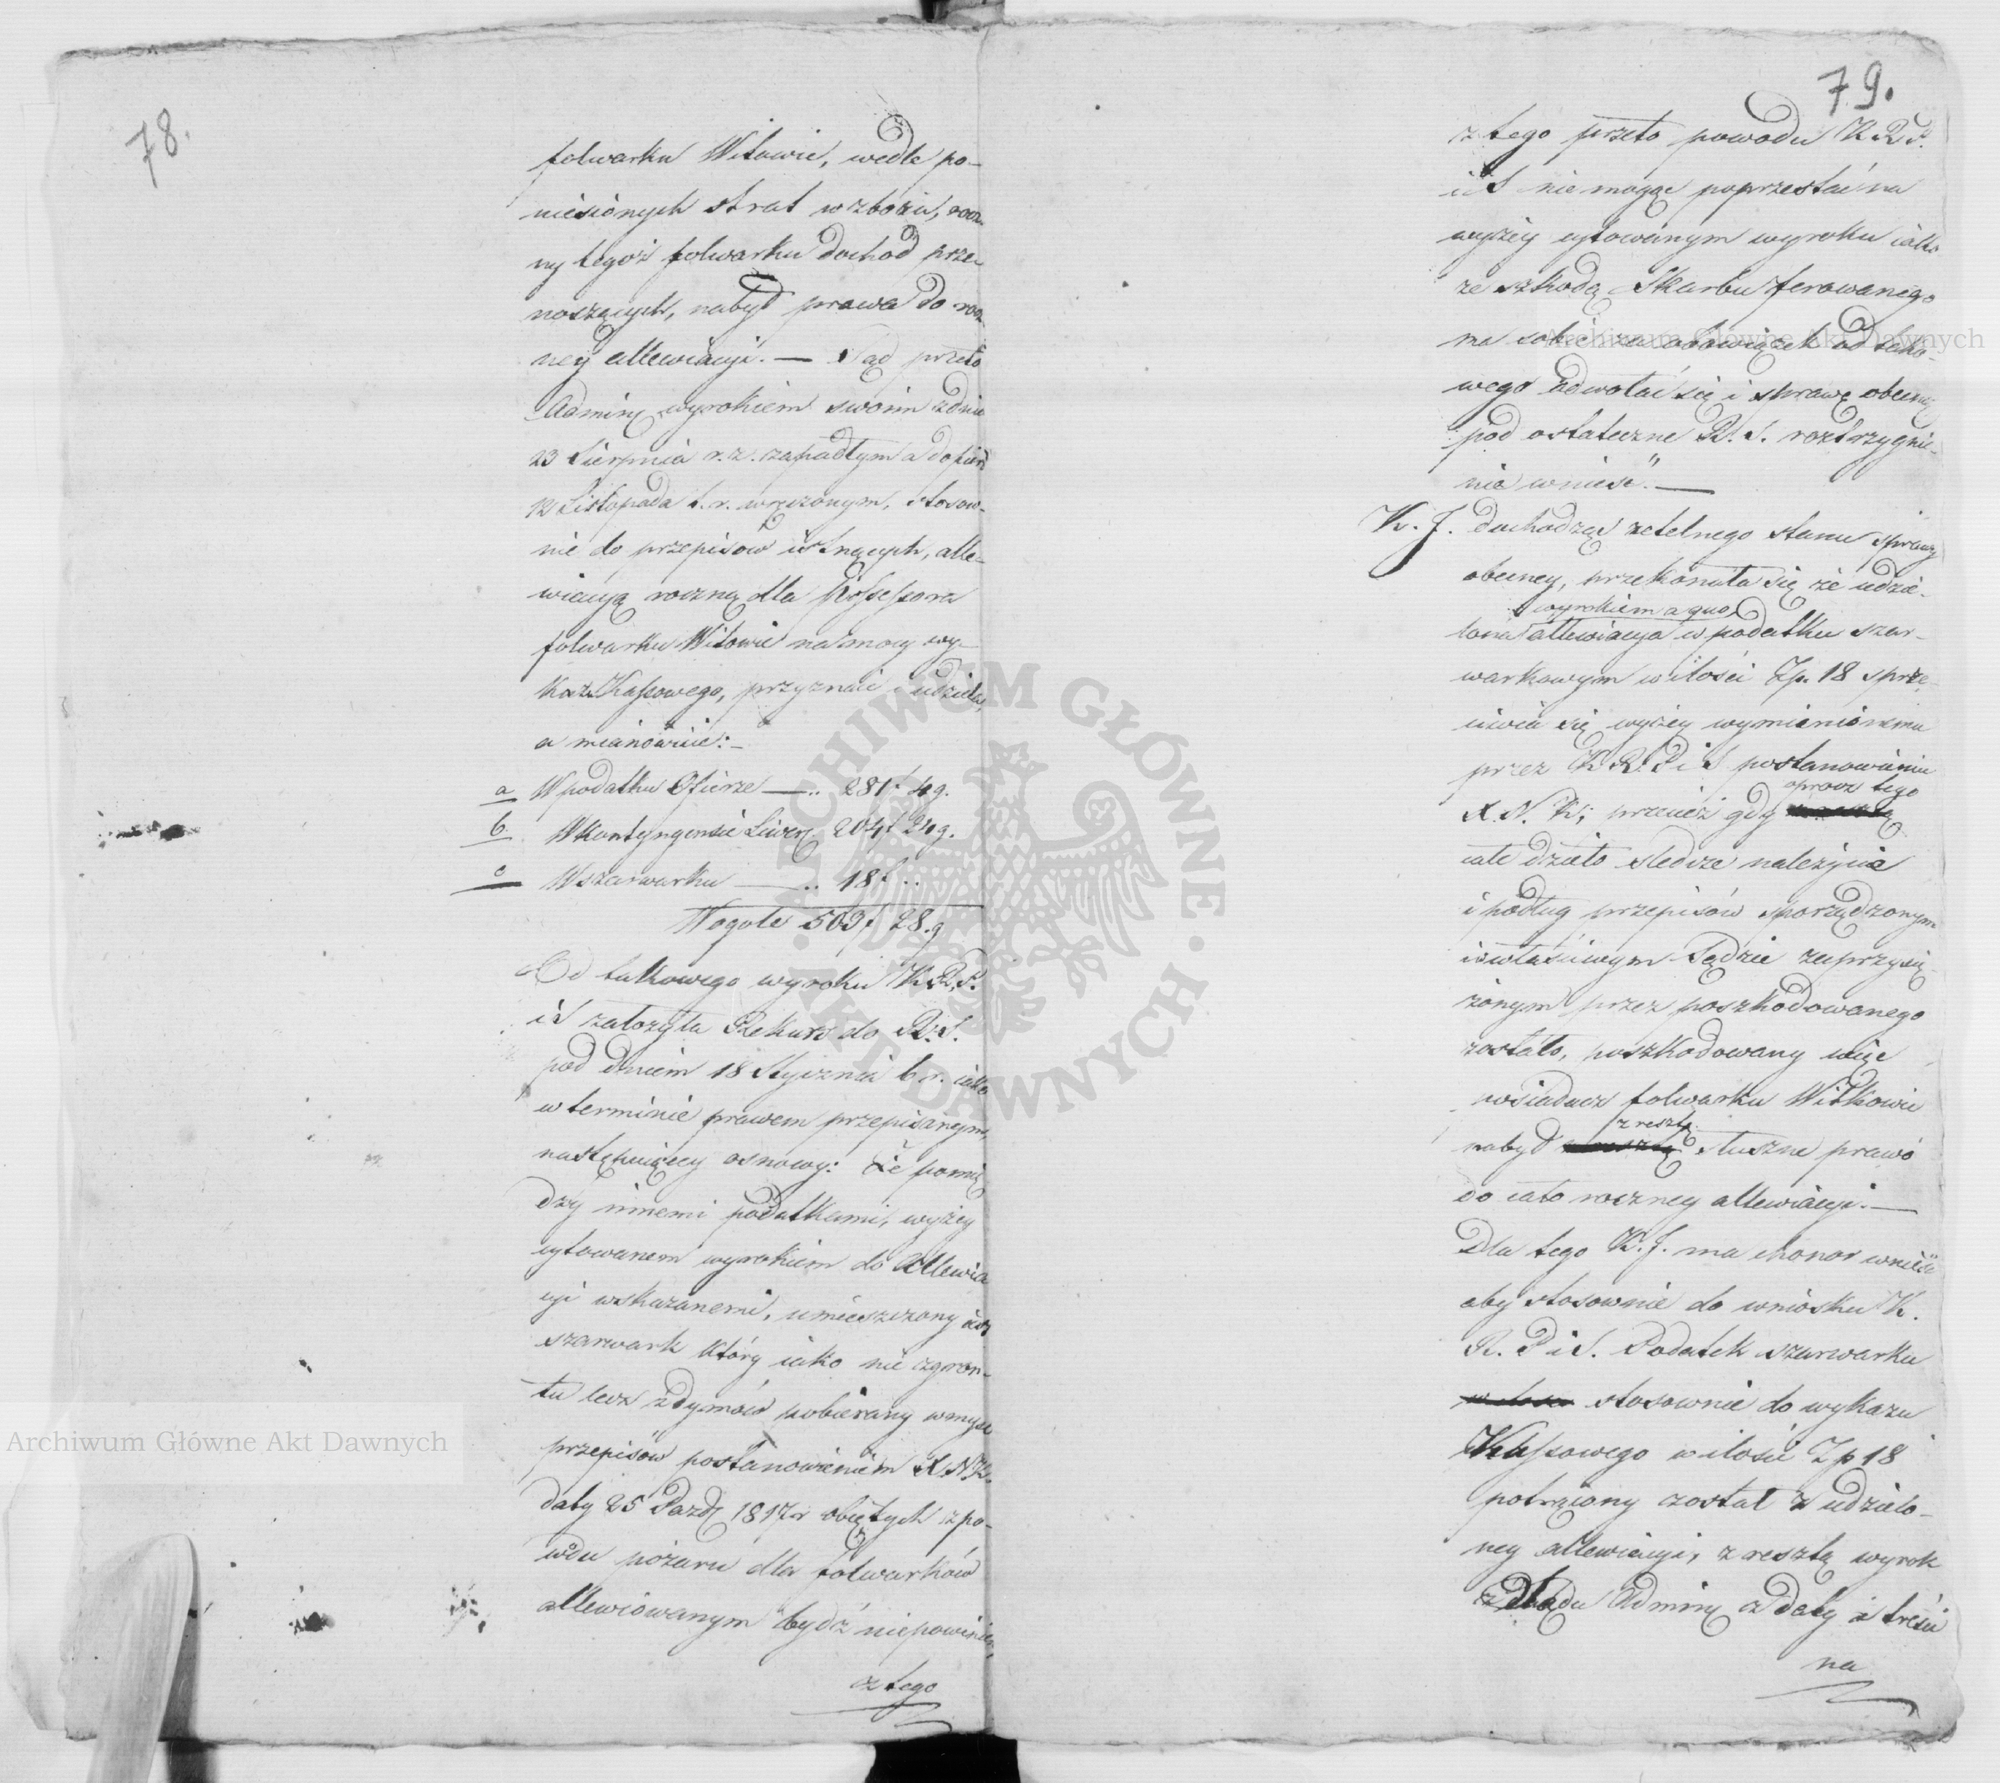 78.
folwarku Witowie, wedle po-
niesionych strat w zbożu, rocz-
ny tegoż folwarku dochod prze-
noszących, nabył prawa do rocz-
ney allewiacyi. — Sąd przeto
Adminy wyrokiem swoim z dnia
23 Sierpnia r. z. zapadłym a dopiero
12 Listopada t. r. wręczonym, stosow-
nie do przepisow istnących, alle-
wiacyą roczną dla Possessora
folwarku Witowie na mocy wy-
kazu Kassowego, przyznać i udzielić,
a mianowicie: –
a W podatku Ofierze —.. 281 f 4 g.
b. W kontyngensie Liwer. 204 f 24 g.
c W szarwarku —.. 18 f ..
Wogole 503 f 28. g
Od takowego wyroku K. R. P.
i S założyła Rekurs do R. S.
pod dniem 18 Stycznia b. r. iako
w terminie prawem przepisanym,
następuiącey osnowy: Że pomię
dzy innemi podatkami, wyżey
cytowanem wyrokiem do allewia
cyi wskazanemi, umieszczony iest
szarwark który iako nie z gron-
tu lecz z dymów pobierany w myśl
przepisów postanowieniem X. N. K.
daty 25 Pazdz 1817 r obiętych z po-
wodu pożaru dla folwarków
allewiowanym bydź niepowinien,
z tego
79.
z tego przeto powodu K. R. P.
i S nie mogąc poprzestać na
wyżey cytowanym wyroku iako
ze szkodą Skarbu ferowanego
ma sobie za obowiązek od tako-
wego odwołać się i sprawę obecną
pod ostateczne R. S. rozstrzygnie-
nie wnieść". —
K. J. dochodząc rzetelnego stanu sprawy
obecney, przekonała się że udzie-
wyrokiem a quo
lona allewiacya w podatku szar-
warkowym w ilości Zp. 18 sprze-
ciwia się wyżey wymienionemu
przez K R. P i S postanowieniu
oprocz tego
X. N. K; przecież gdy
całe dzieło śledcze należycie
i podług przepisów sporządzonym
i w właściwym Sądzie zaprzysię-
żonym przez poszkodowanego
zostało, poszkodowany więc
posiadacz folwarku Witkowie
z resztą
nabył słuszne prawo
do cało roczney allewiacyi. —
Dla tego K. J. ma honor wnieść
aby stosownie do wniosku K.
R. P i S. Podatek szarwarku
stosownie do wykazu
Kassowego w ilości Zp 18
potrącony został z udzielo-
ney allewiacyi, z resztą wyrok
Sądu Adminy z daty i treści
na
Archiwum Główne Akt Dawnych
Archiwum Główne Akt Dawnych
ARCHIWUM GŁÓWNE · AKT DAWNYCH ·